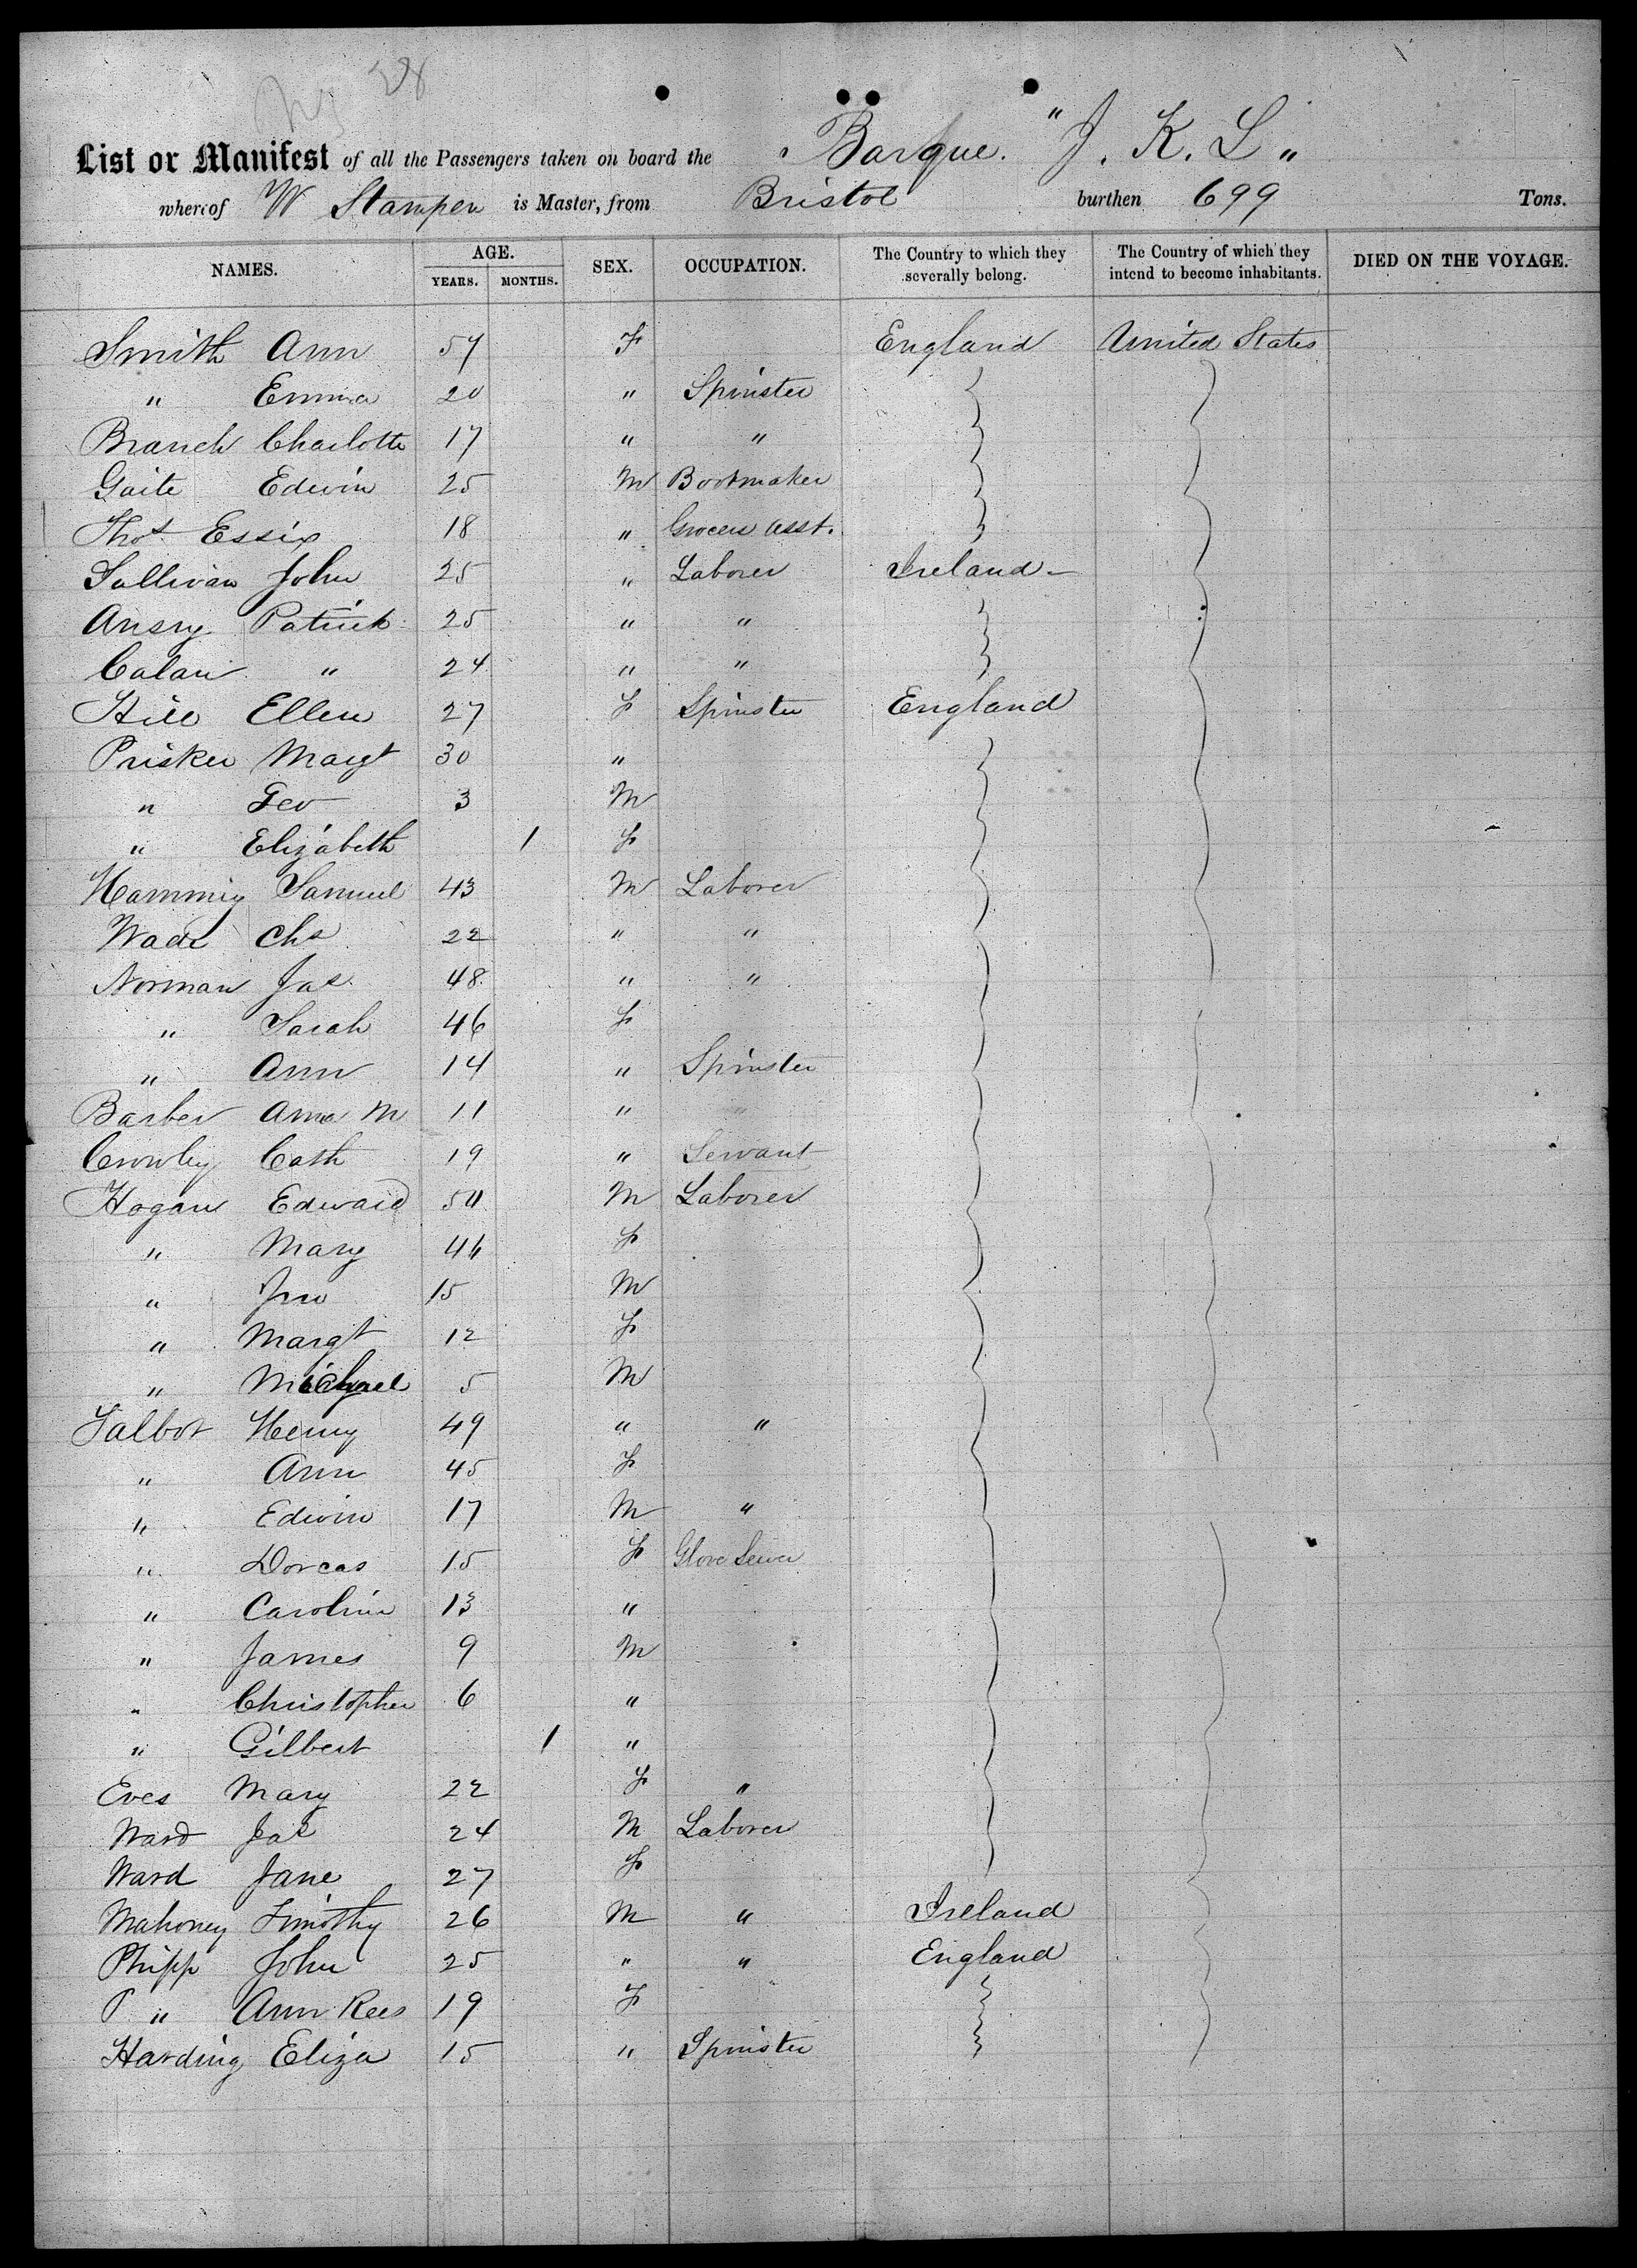 38
List or Manifest of all the Passengers taken on board the Barque. "J. K. L"
whereof W Stamper is Master, from Bristol burthen 699 Tons.
NAMES. AGE. YEARS. MONTHS. SEX. OCCUPATION. The Country to which they severally belong. The Country of which they intend to become inhabitants. DIED ON THE VOYAGE.
Smith Ann 57 F England United States
" Emma 20 " Spinster
Branch Charlotte 17 " "
Gaite Edwin 25 M Bootmaker
Thos Essix 18 " Grocers asst.
Sullivan John 25 " Laborer Ireland
Ansry Patrick 25 " "
Calan " 24 " "
Hill Ellen 27 F Spinster England
Prisker Margt 30 "
" Geo 3 M
" Elizabeth 1 F
Hamming Samuel 43 M Laborer
Wade Chs 22 " "
Norman Jas 48 " "
" Sarah 46 F
" Ann 14 " Spinster
Barber Ann M 11 " "
Crowley Cath 19 " Servant
Hogan Edward 50 M Laborer
" Mary 46 F
" Jno 15 M
" Margt 12 F
" Michael 5 M
Talbot Henry 49 " "
" Ann 45 F
" Edwin 17 M "
" Dorcas 15 F Glove Sewer
" Carolin 13 "
" James 9 M
" Christopher 6 "
" Gilbert 1 "
Eves Mary 22 F "
Ward Jas 24 M Laborer
Ward Jane 27 F
Mahoney Timothy 26 M " Ireland
Phipp John 25 " " England
P " Ann Rees 19 F
Harding Eliza 15 " Spinster